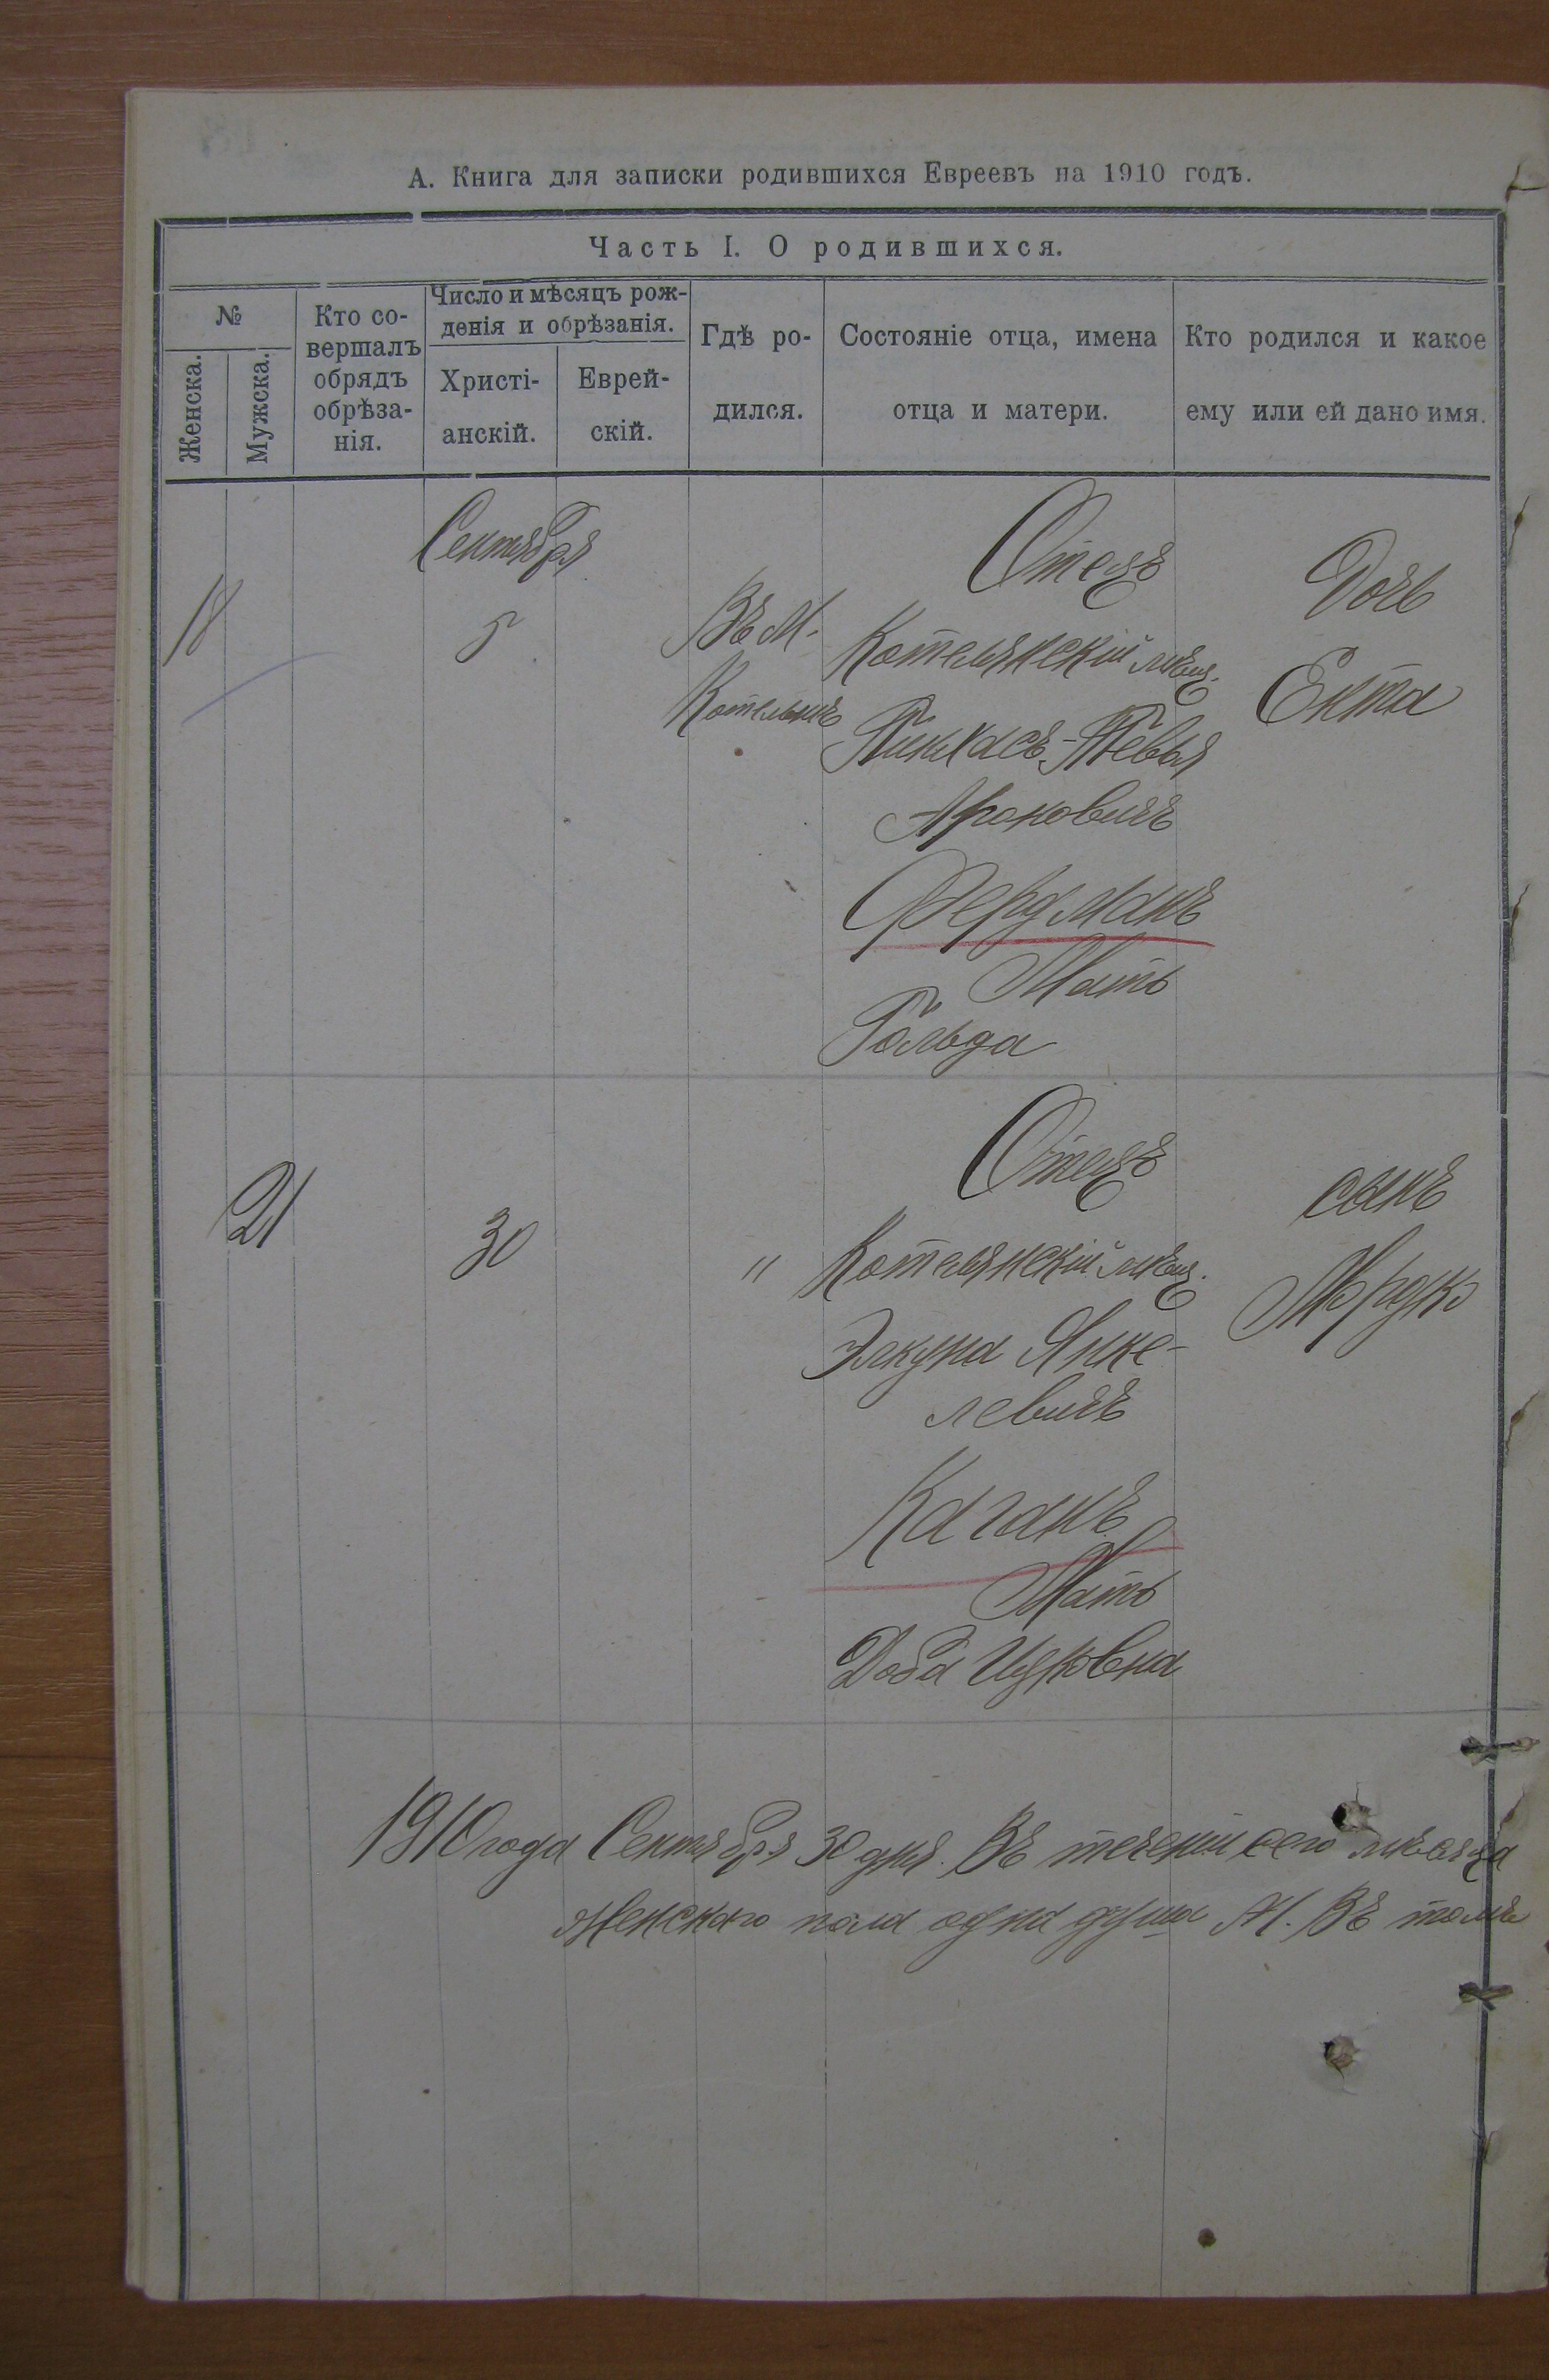 А. Книга для записки родившихся Евреевъ на 1910 годъ.
Часть I. О родившихся.
№
Женска.
Мужска.
Кто со-
вершалъ
обрядъ
обрѣза-
нія.
Число и мѣсяцъ рож-
денія и обрѣзанія.
Христі-
анскій.
Еврей-
скій.
Гдѣ ро-
дился.
Состояніе отца, имена
отца и матери.
Кто родился и какое
ему или ей дано имя.
18
Сентября
5
Въ М.
Котельнѣ
Отецъ
Котелянскій мѣщ.
Пинхасъ-Тевья
Ароновичъ
Фердманъ
Мать
Гольда
Дочь
Ента
21
30
"
Отецъ
Котелянскій мѣщ.
Элкуна Янке-
левичъ
Каганъ
Мать
Доба Ицковна
сынъ
Мордко
1910 года Сентября 30 дня. Въ теченіи сего мѣсяца
женскаго пола одна душа М. Въ томъ